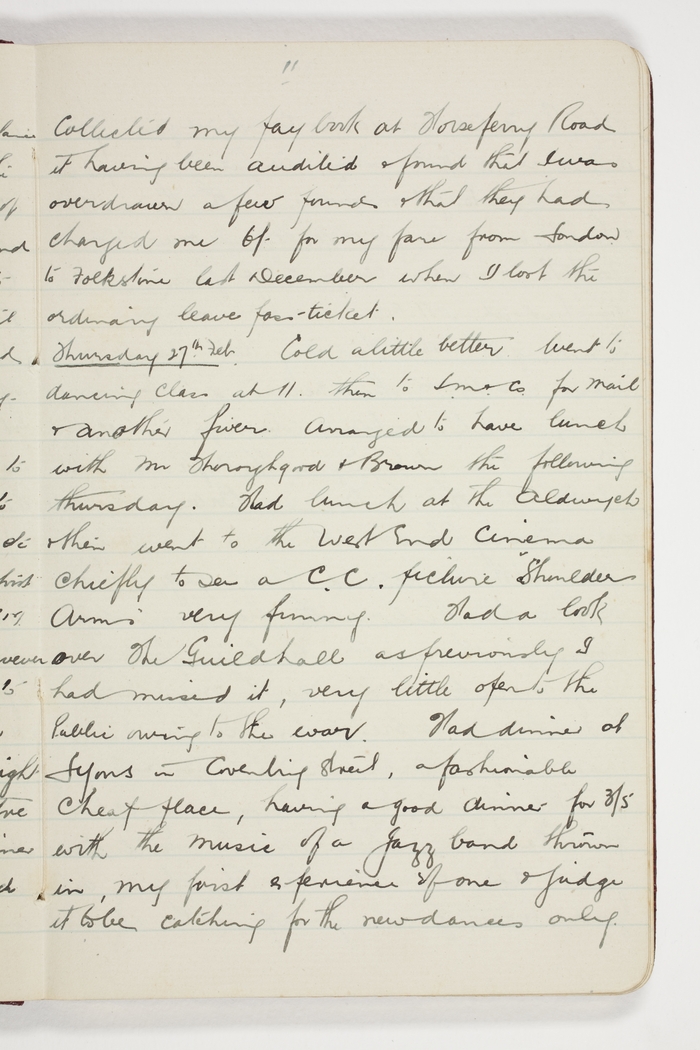 11
Collected my pay book at Horseferry Road
it having been audited & found that I was
overdrawn a few pounds & that they had
charged me 6/- for my fare from London
to Folkstone last December when I lost the
ordinary leave pass-ticket.
Thursday 27th Feb. Cold a little better. Went to
dancing class at 11. then to & Co. for mail
& another fiver. Arranged to have lunch
with Mr Thoroughgood & Brown the following
thursday. Had lunch at the Aldwych
& then went to the West End Cinema
chiefly to see a C.C. picture "Shoulder
Arms" very funny. Had a look
over the Guildhall as previously I
had missed it, very little open to the
Public owing to the war. Had dinner at
Lyons in Coventry Street, a fashionable
cheap place, having a good dinner for 3/5
with the music of a Jazz band thrown
in, my first experience of one & judge
it to be catching for the new dances only.